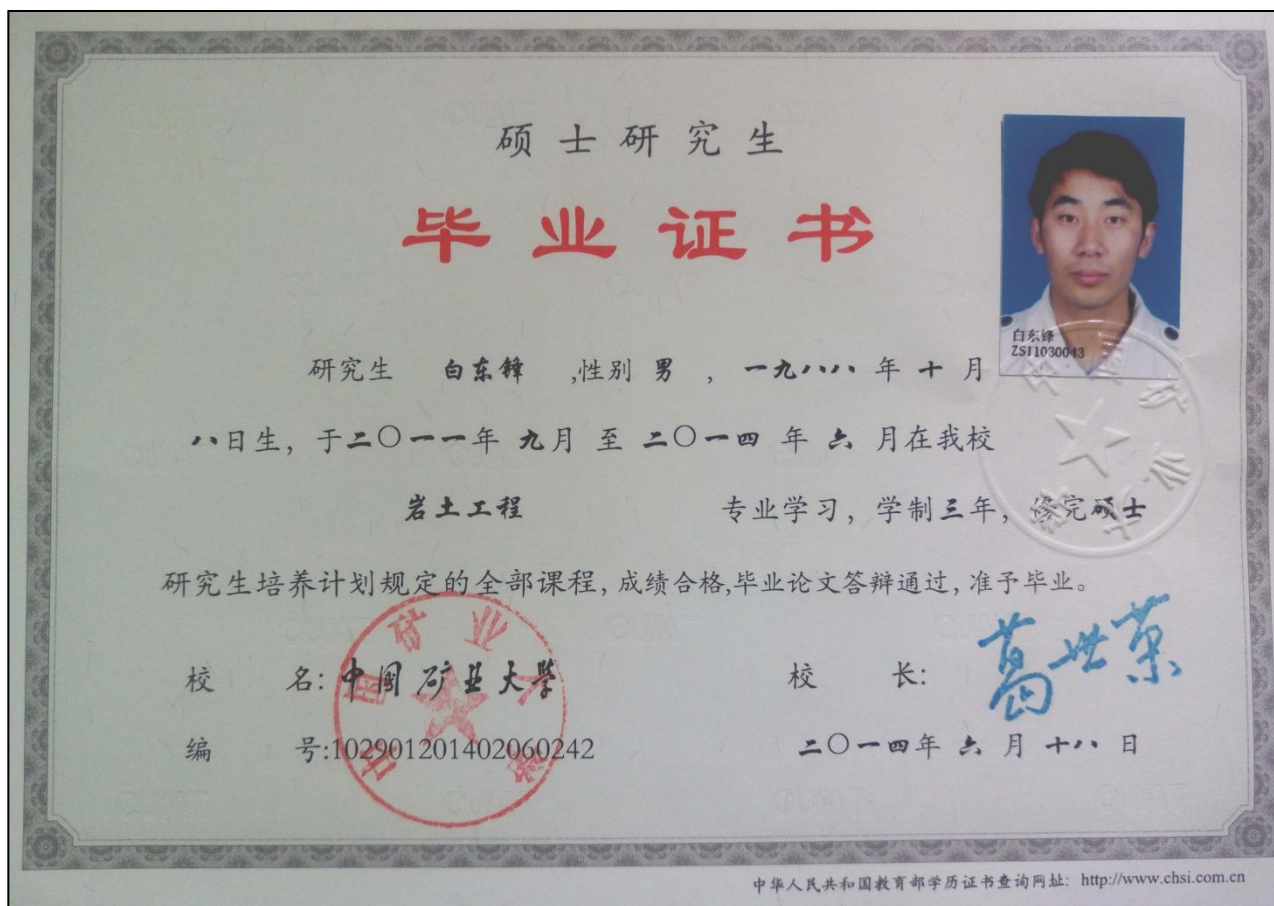 硕士研究生
毕业证书
白东锋
ZS11030043
研究生 白东锋 ,性别 男 , 一九八八 年 十 月
八日生, 于二〇一一年 九月 至 二〇一四 年 六 月在我校
岩土工程 专业学习, 学制三年, 修完硕士
研究生培养计划规定的全部课程, 成绩合格,毕业论文答辩通过, 准予毕业。
校 名: 中国矿业大学 校 长: 葛世荣
编 号:102901201402060242 二〇一四年 六 月 十八 日
中国矿业大学
中华人民共和国教育部学历证书查询网址: http://www.chsi.com.cn